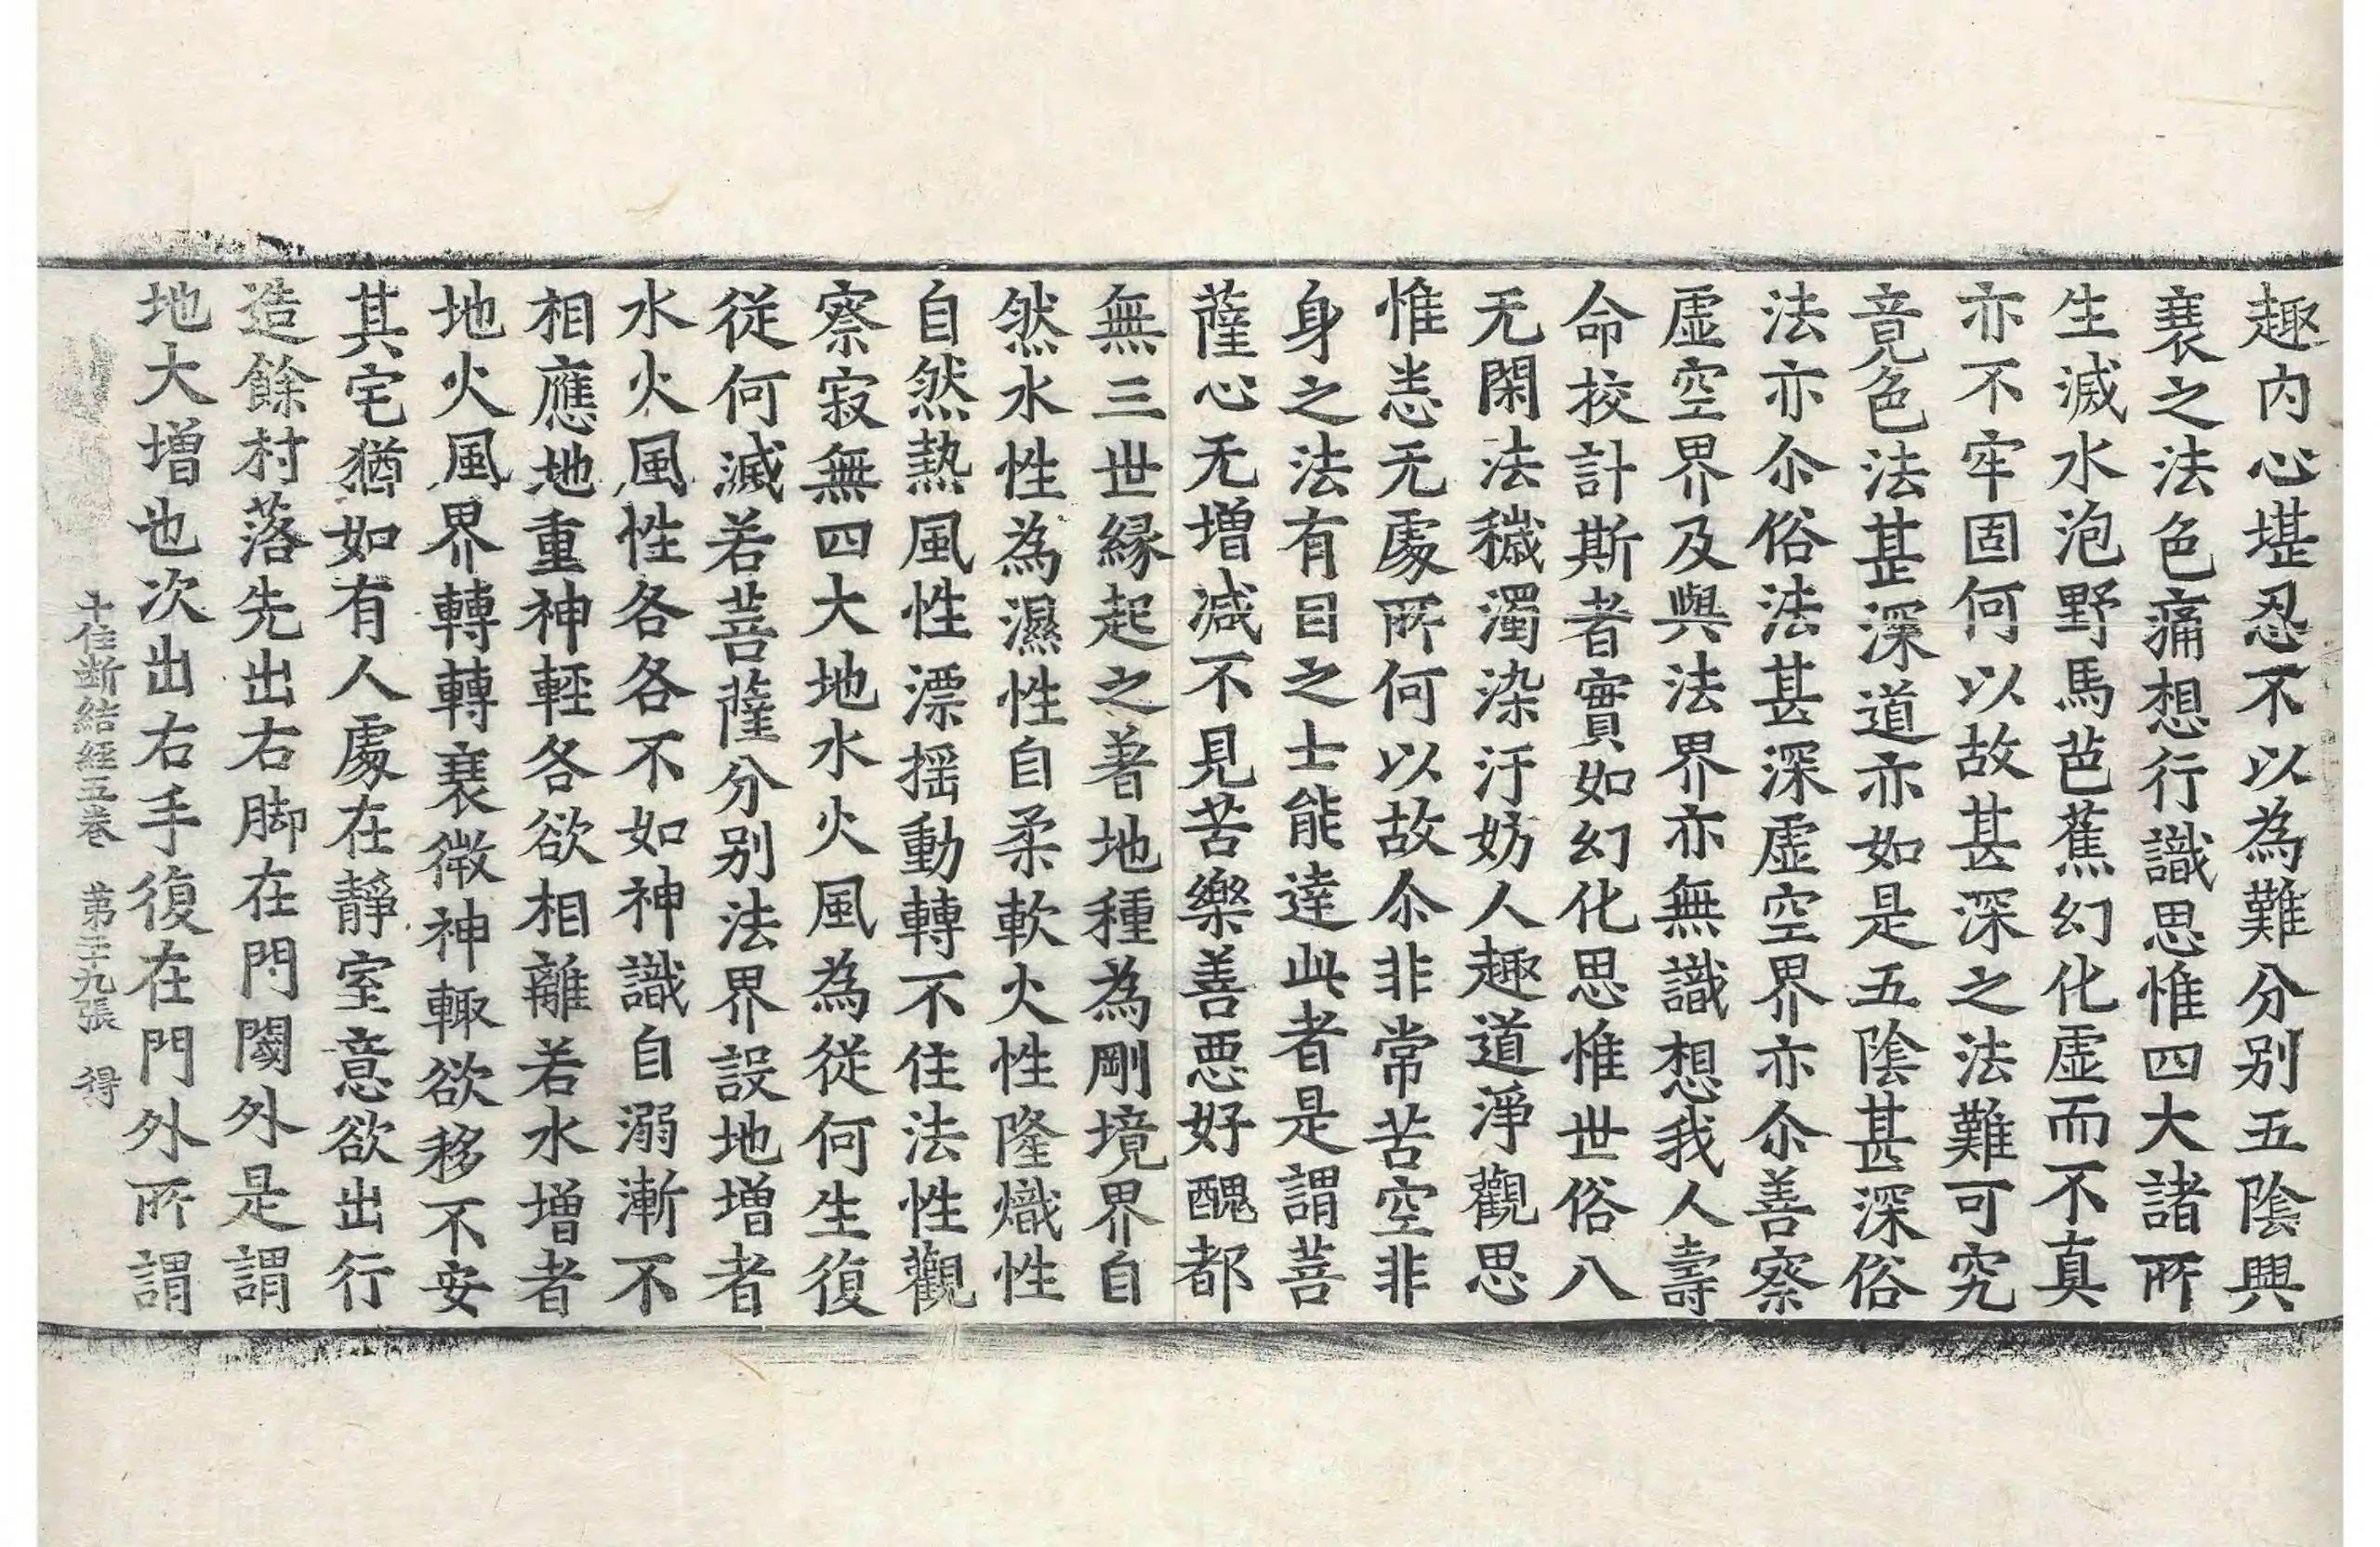 趣内心堪忍不以為難分別五陰興
衰之法色痛想行識思惟四大諸所
生滅水泡野馬芭蕉幻化虛而不真
亦不牢固何以故甚深之法難可究
竟色法甚深道亦如是五陰甚深俗
法亦尒俗法甚深虛空界亦尒善察
虛空界及與法界亦無識想我人壽
命挍計斯者實如幻化思惟世俗八
无閑法穢濁染汙妨人趣道淨觀思
惟恚无處所何以故尒非常苦空非
身之法有目之士能達此者是謂菩
薩心无增減不見苦樂善惡好醜都
無三世緣起之著地種為剛境界自
然水性為濕性自柔軟火性隆熾性
自然熱風性漂搖動轉不住法性觀
察寂無四大地水火風為從何生復
從何滅若菩薩分別法界設地增者
水火風性各各不如神識自溺漸不
相應地重神輕各欲相離若水增者
地火風界轉轉衰微神輙欲移不安
其宅猶如有人處在靜室意欲出行
造餘村落先出右脚在門閫外是謂
地大增也次出右手復在門外所謂
十住断結經五卷 第二十九張 得